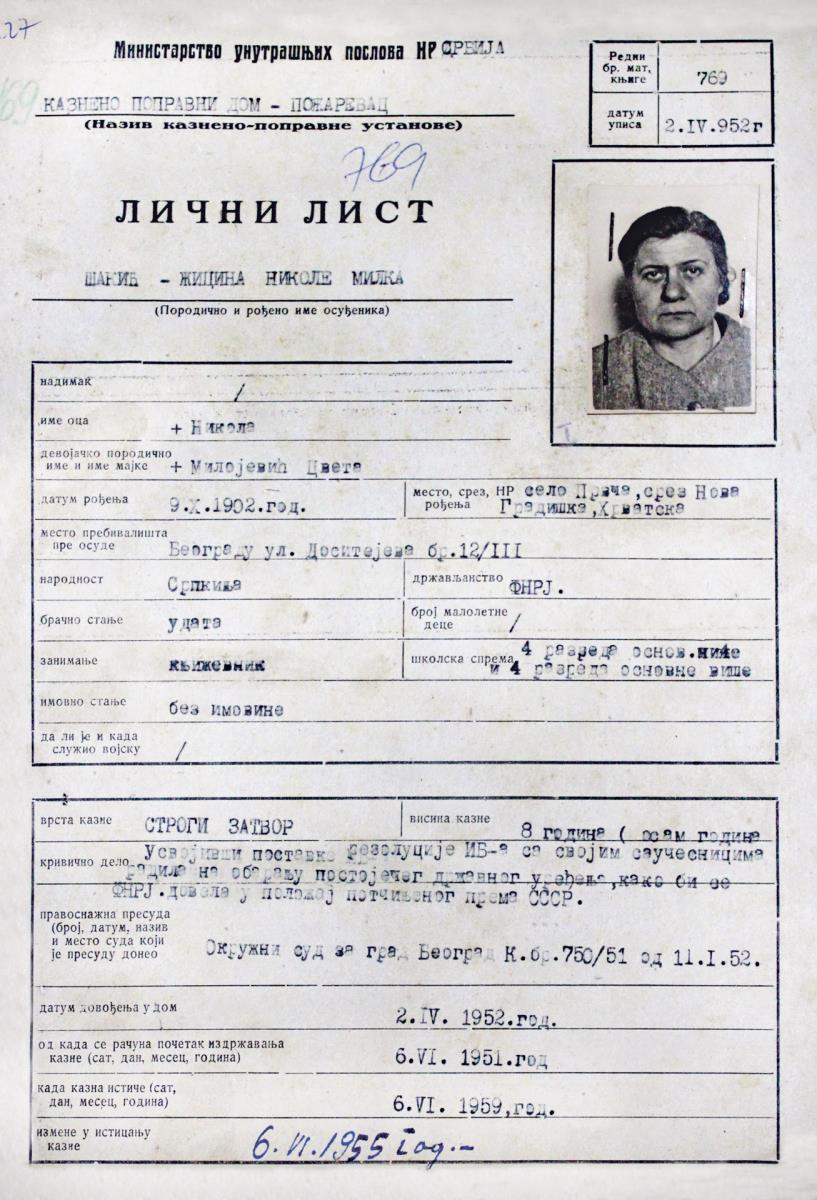 27
Министарство унутрашњих послова НР СРБИЈА
КАЗНЕНО ПОПРАВНИ ДОМ - ПОЖАРЕВАЦ
(Назив казнено-поправне установе)
Редни бр. мат. књиге 769
датум уписа 2.IV.952г
769
ЛИЧНИ ЛИСТ
ШАКИЋ - ЖИЦИНА НИКОЛЕ МИЛКА
(Породично и рођено име осуђеника)
I
надимак /
име оца + Никола
девојачко породично
име и име мајке + Милојевић Цвета
датум рођења 9.X.1902.год.
место, срез, НР село Првча,срез Нова
рођења Градишка,Хрватска
место пребивалишта
пре осуде Београду ул. Доситејева бр.12/III
народност Српкиња
држављанство ФНРЈ.
брачно стање удата
број малолетне
деце /
занимање књижевник
школска спрема 4 разреда основ.ниже
и 4 разреда основне више
имовно стање без имовине
да ли је и када
служио војску /
врста казне СТРОГИ ЗАТВОР
висина казне 8 година ( осам година
кривично дело Усвојивши поставке резолуције ИБ-а са својим саучесницима
радила на обарању постојећег државног уређења,како би се
ФНРЈ.довела у положај потчињеног према СССР.
правоснажна пресуда
(број, датум, назив
и место суда који
је пресуду донео Окружни суд за град Београд К.бр.750/51 од 11.I.52.
датум довођења у Дом 2.IV. 1952.год.
од када се рачуна почетак издржавања
казне (сат, дан, месец, година) 6.VI. 1951.год
када казна истиче (сат,
дан, месец, година) 6.VI. 1959,год.
измене у истицању
казне 6.VI.1955 год.-